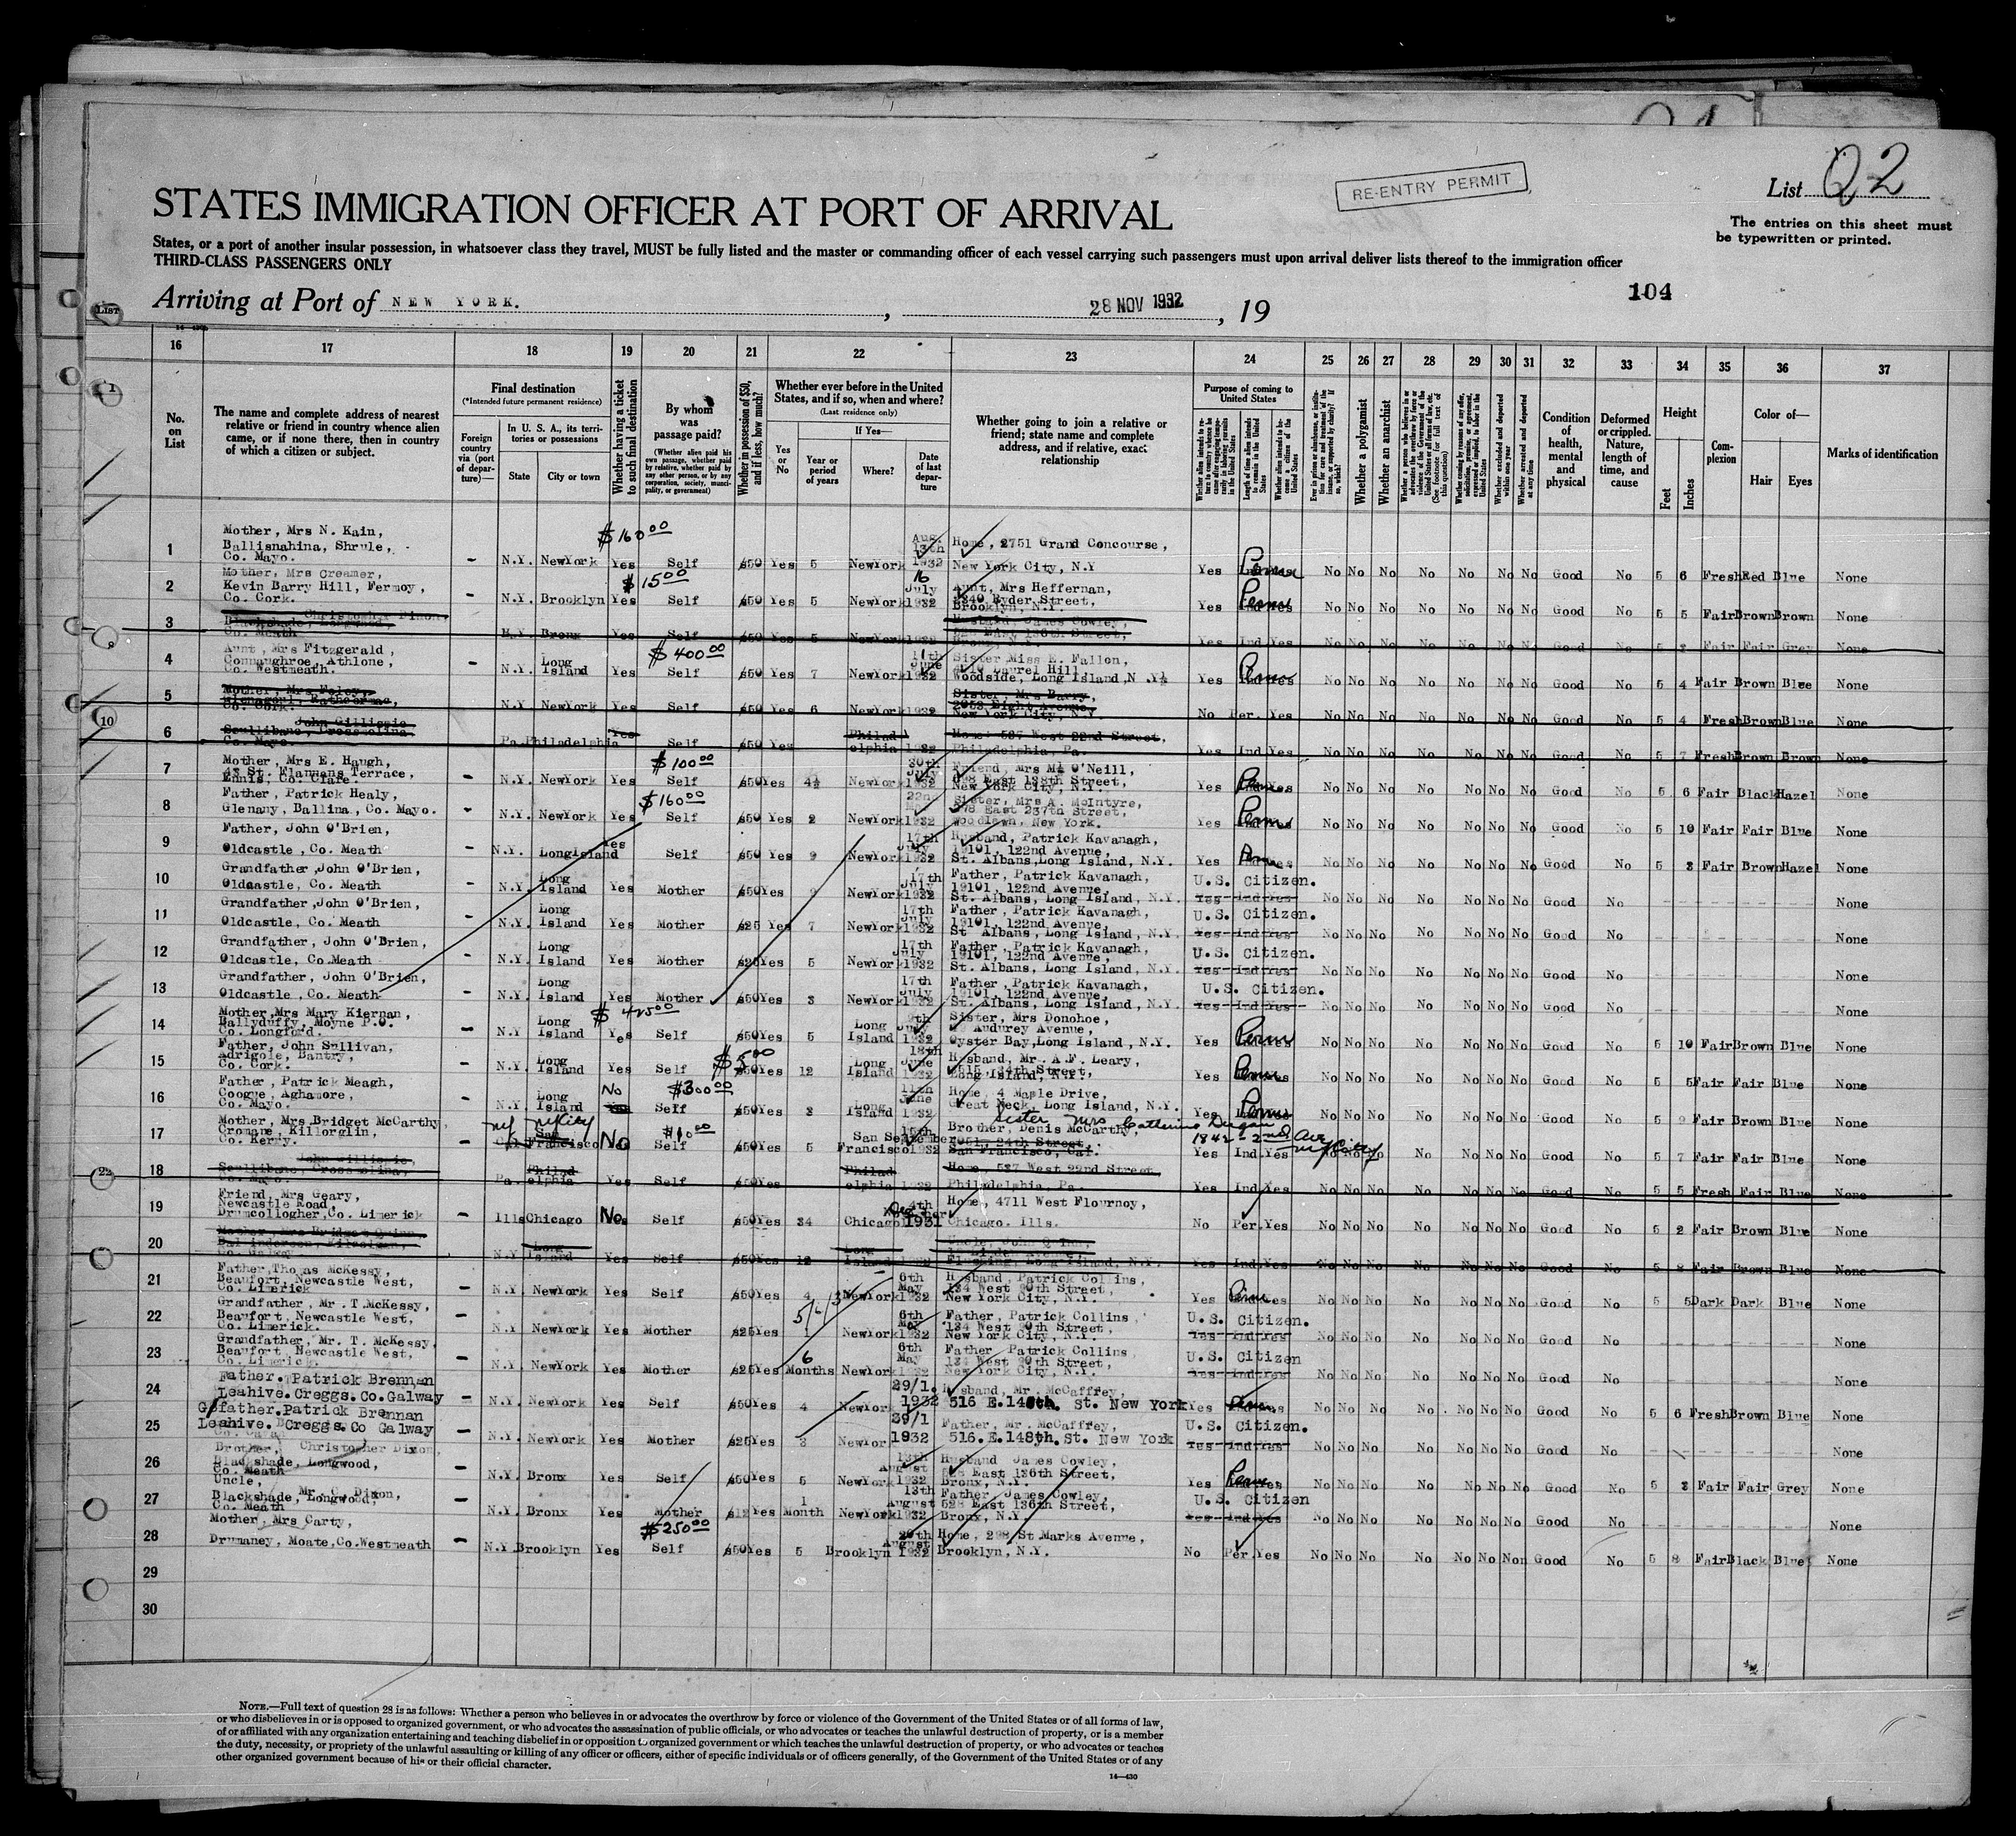 RE-ENTRY PERMIT
List 22
The entries on this sheet must
be typewritten or printed.
STATES IMMIGRATION OFFICER AT PORT OF ARRIVAL
States, or a port of another insular possession, in whatsoever class they travel, MUST be fully listed and the master or commanding officer of each vessel carrying such passengers must upon arrival deliver lists thereof to the immigration officer
THIRD-CLASS PASSENGERS ONLY
104
Arriving at Port of NEW YORK. , 28 NOV 1932 , 19
LIST
16 17 18 19 20 21 22 23 24 25 26 27 28 29 30 31 32 33 34 35 36 37
No. on List
The name and complete address of nearest
relative or friend in country whence alien
came, or if none there, then in country
of which a citizen or subject.
Final destination
(*Intended future permanent residence)
Foreign country via (port of departure)—
In U. S. A., its territories or possessions
State City or town
Whether having a ticket to such final destination
By whom was passage paid?
(Whether alien paid his own passage, whether paid by relative, whether paid by any other person, or by any corporation, society, municipality, or government)
Whether in possession of $50, and if less, how much?
Whether ever before in the United States, and if so, when and where?
(Last residence only)
Yes or No
If Yes—
Year or period of years
Where?
Date of last departure
Whether going to join a relative or
friend; state name and complete
address, and if relative, exact
relationship
Purpose of coming to United States
Whether a polygamist
Whether an anarchist
Whether excluded and deported within one year
Whether arrested and deported at any time
Condition of health, mental and physical
Deformed or crippled. Nature, length of time, and cause
Height
Feet Inches
Complexion
Color of—
Hair Eyes
Marks of identification
1 Mother, Mrs N. Kain, Ballisnahina, Shrule, Co. Mayo. - N.Y. NewYork Yes $160.00 Self $50 Yes 5 NewYork Aug. 13th 1932 Home, 2751 Grand Concourse, New York City, N.Y Yes Perm No No No No No No No Good No 5 6 Fresh Red Blue None
2 Mother, Mrs Creamer, Kevin Barry Hill, Fermoy, Co. Cork. - N.Y. Brooklyn Yes $15.00 Self $50 Yes 5 NewYork 16 July 1932 Aunt, Mrs Heffernan, 2340 Ryder Street, Brooklyn, N.Y. Yes Perm No No No No No No No Good No 5 5 Fair Brown Brown None
3 Christopher Dixon, Blackshade, Longwood, Co. Meath N.Y. Bronx Yes Self $50 Yes 5 NewYork 1932 Husband, James Cowley, 528 East 136th Street, Yes Ind Yes No No No No No No No Good No 5 3 Fair Fair Grey None
4 Aunt, Mrs Fitzgerald, Connaughroe, Athlone, Co. Westmeath. - N.Y. Long Island Yes $400.00 Self $50 Yes 7 NewYork 11th June 1932 Sister Miss E. Fallon, Laurel Hill, Woodside, Long Island, N.Y. Yes Perm No No No No No No No Good No 5 4 Fair Brown Blue None
5 Mother, Mrs Foley, Co. Cork. N.Y. NewYork Yes Self $50 Yes 6 NewYork 1932 Sister, Mrs Barry, 2953 Eight Avenue, New York City, N.Y. No Per. Yes No No No No No No No Good No 5 4 Fresh Brown Blue None
6 John Gillispie Scullibane, Crossmolina, Co. Mayo. Pa. Philadelphia Yes Self $50 Yes Philadelphia 1932 Home, 537 West 22nd Street, Philadelphia, Pa. Yes Ind Yes No No No No No No No Good No 5 7 Fresh Brown Brown None
7 Mother, Mrs E. Haugh, St. Flannans Terrace, Ennis, Co. Clare. - N.Y. NewYork Yes $100.00 Self $50 Yes 4½ NewYork 30th July 1932 Friend, Mrs M. O'Neill, 698 East 138th Street, New York City, N.Y. Yes Perm No No No No No No No Good No 5 6 Fair Black Hazel None
8 Father, Patrick Healy, Glenany, Ballina, Co. Mayo. - N.Y. NewYork Yes $160.00 Self $50 Yes 2 NewYork 22nd 1932 Sister, Mrs A. McIntyre, 378 East 237th Street, Woodlawn, New York. Yes Perm No No No No No No No Good No 5 10 Fair Fair Blue None
9 Father, John O'Brien, Oldcastle, Co. Meath - N.Y. LongIsland Yes Self $50 Yes 9 NewYork 17th July 1932 Husband, Patrick Kavanagh, 19101, 122nd Avenue, St. Albans, Long Island, N.Y. Yes Perm No No No No No No No Good No 5 3 Fair Brown Hazel None
10 Grandfather, John O'Brien, Oldcastle, Co. Meath - N.Y. Long Island Yes Mother $50 Yes 9 NewYork 17th July 1932 Father, Patrick Kavanagh, 19101, 122nd Avenue, St. Albans, Long Island, N.Y. U.S. Citizen. Yes Ind Yes No No No No No No No Good No None
11 Grandfather, John O'Brien, Oldcastle, Co. Meath - N.Y. Long Island Yes Mother $25 Yes 7 NewYork 17th July 1932 Father, Patrick Kavanagh, 19101, 122nd Avenue, St Albans, Long Island, N.Y. U.S. Citizen. Yes Ind Yes No No No No No No No Good No None
12 Grandfather, John O'Brien, Oldcastle, Co. Meath - N.Y. Long Island Yes Mother $25 Yes 5 NewYork 17th July 1932 Father, Patrick Kavanagh, 19101, 122nd Avenue, St. Albans, Long Island, N.Y. U.S. Citizen. Yes Ind Yes No No No No No No No Good No None
13 Grandfather, John O'Brien, Oldcastle, Co. Meath - N.Y. Long Island Yes Mother $50 Yes 3 NewYork 17th July 1932 Father, Patrick Kavanagh, 19101, 122nd Avenue, St. Albans, Long Island, N.Y. U.S. Citizen. Yes Ind Yes No No No No No No No Good No None
14 Mother, Mrs Mary Kiernan, Ballyduffy, Moyne P.O. Co. Longford. - N.Y Long Island Yes Self $50 Yes 5 Long Island 9th July 1932 Sister, Mrs Donohoe, Audurey Avenue, Oyster Bay, Long Island, N.Y. Yes Perm No No No No No No No Good No 5 10 Fair Brown Blue None
15 Father, John Sullivan, Adrigole, Bantry, Co. Cork. - N.Y. Long Island Yes Self $5.00 $50 Yes 12 Long Island 18th June 1932 Husband, Mr. A.F. Leary, 34th Street, Long Island, N.Y. Yes Perm No No No No No No No Good No 5 5 Fair Fair Blue None
16 Father, Patrick Meagh, Coogue, Aghamore, Co. Mayo. - N.Y. Long Island No $300.00 Self $50 Yes 3 Long Island 11th June 1932 Home, 4 Maple Drive, Great Neck, Long Island, N.Y. Yes Perm No No No No No No No Good No 5 9 Fair Brown Blue None
17 Mother, Mrs Bridget McCarthy, Cromane, Killorglin, Co. Kerry. - NY NY City Cal San Francisco No $10.00 Self $50 Yes 5 San Francisco 15th September 1932 Brother, Denis McCarthy, 24th Street, San Francisco, Cal. sister Mrs Catherine Dugan 1842 - 2nd Ave NY City Yes Ind. Yes No No No No No No No Good No 5 7 Fair Fair Blue None
18 John Gillispie, Scullibane, Crossmolina, Co. Mayo. Pa. Philadelphia Yes Self $50 Yes Philadelphia 1932 Home, 537 West 22nd Street, Philadelphia, Pa. Yes Ind Yes No No No No No No No Good No 5 5 Fresh Fair Blue None
19 Friend, Mrs Geary, Newcastle Road, Drumcollogher, Co. Limerick - Ills Chicago No Self $50 Yes 34 Chicago 4th 1931 Home, 4711 West Flournoy, Chicago. Ills. No Per. Yes No No No No No No No Good No 5 2 Fair Brown Blue None
20 Mother, Mrs Bridget Quinn, Co. Galway N.Y. Long Island Yes Self $50 Yes 12 Long Island 1932 Uncle, John Quinn, Flushing, Long Island, N.Y. Yes Ind Yes No No No No No No No Good No 5 8 Fair Brown Blue None
21 Father, Thomas McKessy, Beaufort, Newcastle West, Co. Limerick - N.Y. NewYork Yes Self $50 Yes 4 NewYork 6th May 1932 Husband, Patrick Collins, 134 West 90th Street, New York City, N.Y. Yes Perm No No No No No No No Good No 5 5 Dark Dark Blue None
22 Grandfather, Mr. T. McKessy, Beaufort, Newcastle West, Co. Limerick. - N.Y NewYork Yes Mother $25 Yes 1 NewYork 6th May 1932 Father, Patrick Collins, 134 West 90th Street, New York City, N.Y. U.S. Citizen. Yes Ind Yes No No No No No No No Good No None
23 Grandfather, Mr. T. McKessy, Beaufort, Newcastle West, Co. Limerick. - N.Y. NewYork Yes Mother $25 Yes 6 Months NewYork 6th May 1932 Father Patrick Collins, 134 West 90th Street, New York City, N.Y. U.S. Citizen Yes Ind Yes No No No No No No No Good No None
24 Father. Patrick Brennan Leahive. Creggs. Co. Galway - N.Y. NewYork Yes Self $50 Yes 4 NewYork 29/1. 1932 Husband, Mr. McCaffrey, 516 E. 148th. St. New York Yes Perm No No No No No No No Good No 5 6 Fresh Brown Blue None
25 G/father. Patrick Brennan Leahive. Creggs. Co Galway - N.Y. NewYork Yes Mother $25 Yes 3 NewYork 29/1 1932 Father, Mr. McCaffrey, 516. E. 148th. St. New York U.S. Citizen. Yes Ind Yes No No No No No No No Good No None
26 Brother, Christopher Dixon, Blackshade, Longwood, Co. Meath - N.Y. Bronx Yes Self $50 Yes 5 NewYork 13th August 1932 Husband James Cowley, 528 East 136th Street, Bronx, N.Y. Yes Perm No No No No No No No Good No 5 3 Fair Fair Grey None
27 Uncle, Mr. C. Dixon, Blackshade, Longwood, Co. Meath - N.Y. Bronx Yes Mother $12 Yes 1 Month NewYork 13th August 1932 Father James Cowley, 528 East 136th Street, Bronx, N.Y. U.S. Citizen Yes Ind Yes No No No No No No No Good No None
28 Mother, Mrs Carty, Drumaney, Moate, Co. Westmeath - N.Y. Brooklyn Yes $250.00 Self $50 Yes 5 Brooklyn 20th August 1932 Home, 298 St Marks Avenue, Brooklyn, N.Y. No Per. Yes No No No No No No Non Good No 5 8 Fair Black Blue None
29
30
NOTE.—Full text of question 28 is as follows: Whether a person who believes in or advocates the overthrow by force or violence of the Government of the United States or of all forms of law,
or who disbelieves in or is opposed to organized government, or who advocates the assassination of public officials, or who advocates or teaches the unlawful destruction of property, or is a member
of or affiliated with any organization entertaining and teaching disbelief in or opposition to organized government or which teaches the unlawful destruction of property, or who advocates or teaches
the duty, necessity, or propriety of the unlawful assaulting or killing of any officer or officers, either of specific individuals or of officers generally, of the Government of the United States or of any
other organized government because of his or their official character.
14—430